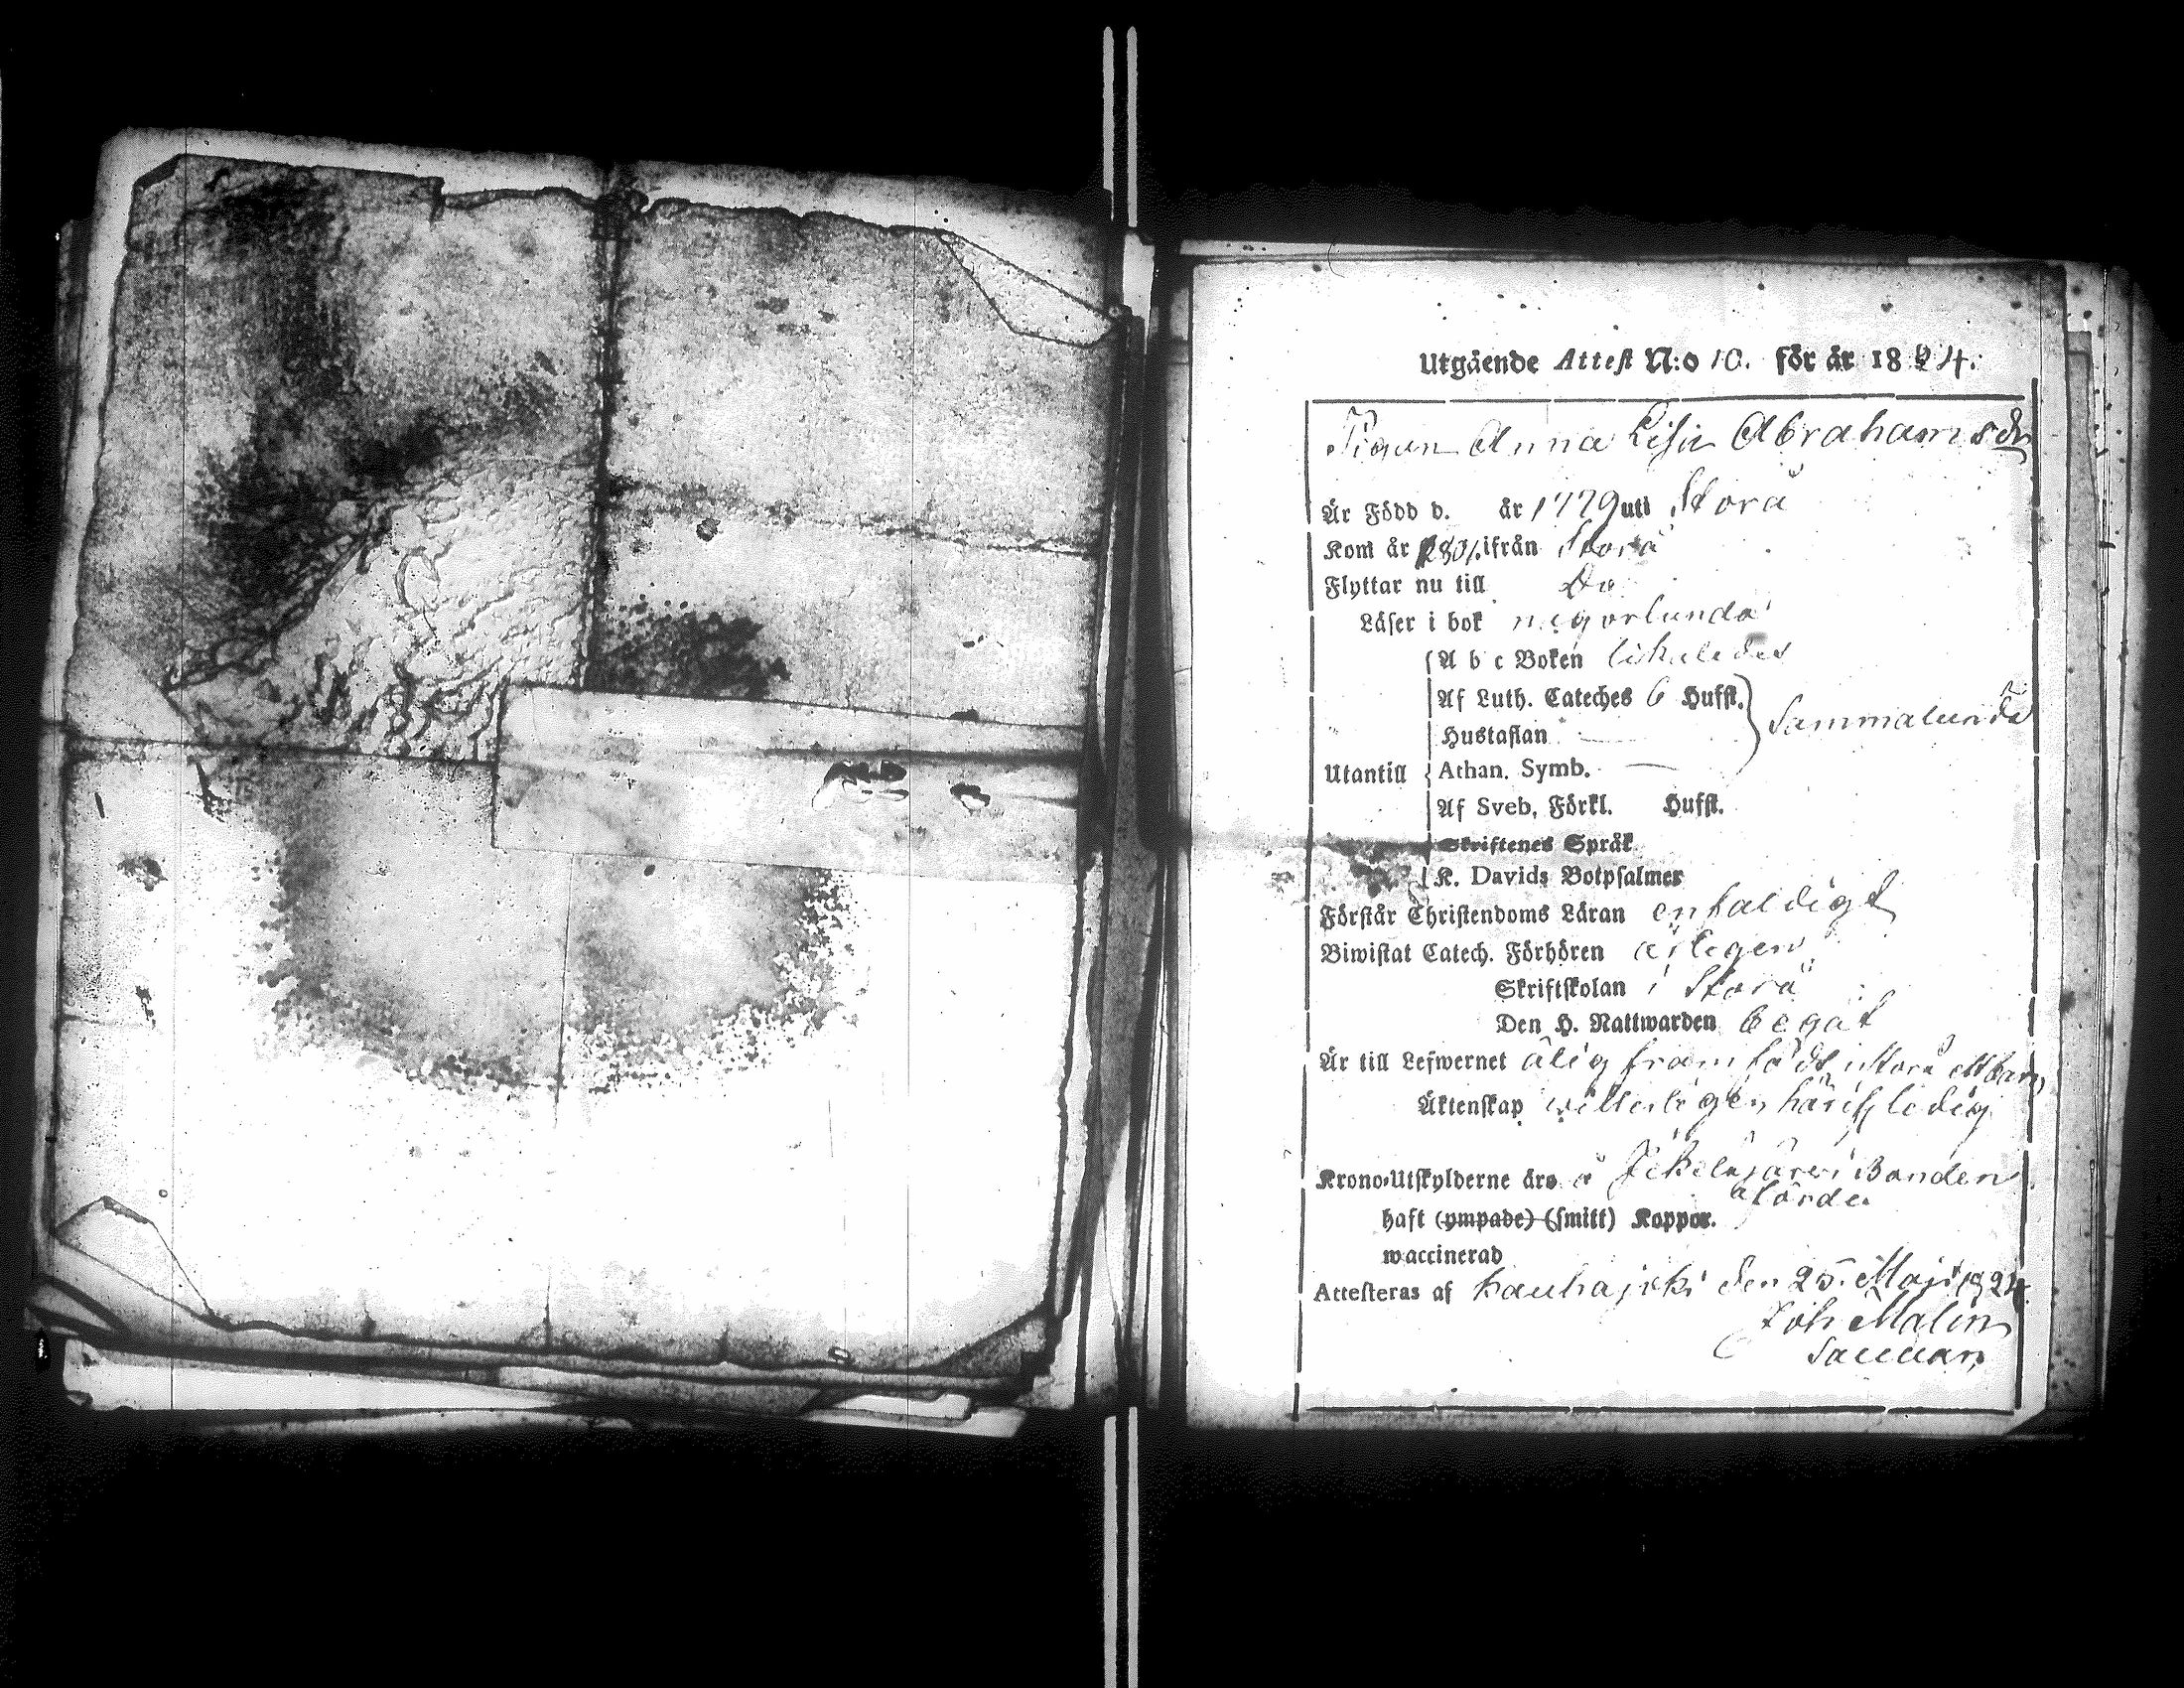 Utgående Attest N:o 10. för år 1824.
Pigan Anna Lisa Abrahamsdr
Är Född d. år 1779 uti Storå
Kom år 1801. ifrån Storå
Flyttar nu till Do
Läser i bok någorlunda
A b c Boken likaledes
Af Luth. Cateches 6 Hufst.
Sammalunda
Hustaflan
Utantill Athan. Symb.
Af Sveb. Förkl. Hufst.
Skriftenes Språk
K. Davids Botpsalmer
Förstår Christendoms Läran enfaldigt
Biwistat Catech. Förhören årligen
Skriftskolan i Storå
Den H. Nattwarden begåt
Är till Lefwernet ärlig framfödt i Storå ett barn
Äktenskap witterligen härifr ledig
Krono-Utskylderne äro å Bonden
aförde
haft (ympade) (smitt) Koppor.
waccinerad
Attesteras af Kauhajoki den 25. Maji 1824.
Joh Malin